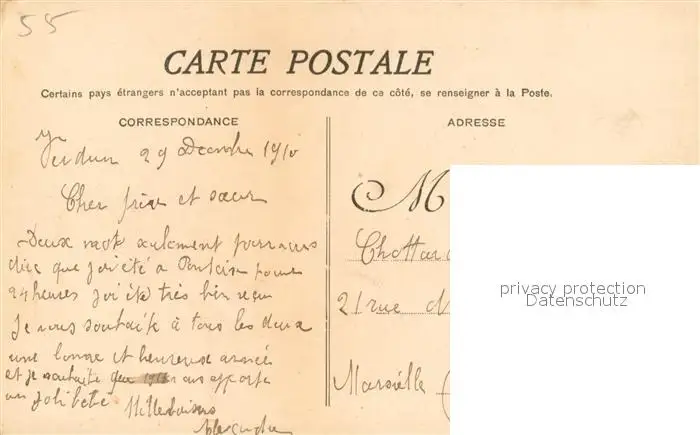 55
CARTE POSTALE
Certains pays étrangers n'acceptant pas la correspondance de ce côté, se renseigner à la Poste.
CORRESPONDANCE
Verdun 29 Decembre 1910
Cher frère et sœur
Deux mots seulement pour vous
dire que j'ai été a Pontoise pour
24 heures j'ai été très bien reçu
Je vous souhaite à tous les deux
une longue et heureuse année
et je souhaite que 1911 vous apporte
un joli bébé Mille baisers
Alexandre
ADRESSE
M
Chottar
21 rue d
Marseille (
privacy protection
Datenschutz